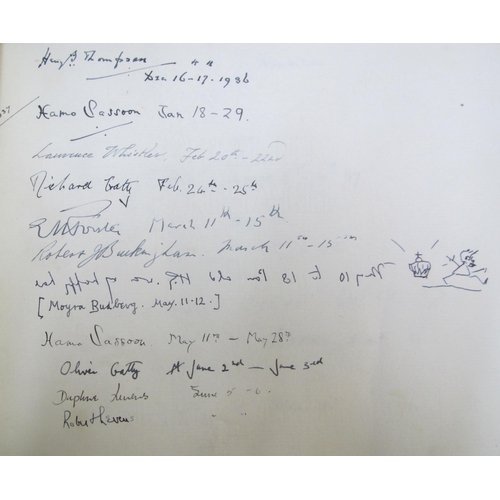 Henry B Thompson " "
Dec 16-17. 1936
37
Hamo Sassoon Jan 18-29.
Laurence Whistler. Feb 20th - 22nd
Richard Gatty Feb. 24th - 25th
EMForster March 11th - 15th
Robert J Buckingham. March 11th - 15th
[Moyra Budberg. May. 11-12.]
Hamo Sassoon May 11th - May 28th
Oliver Gatty June 2nd - June 3rd
Daphne June 5 - 6.
" "